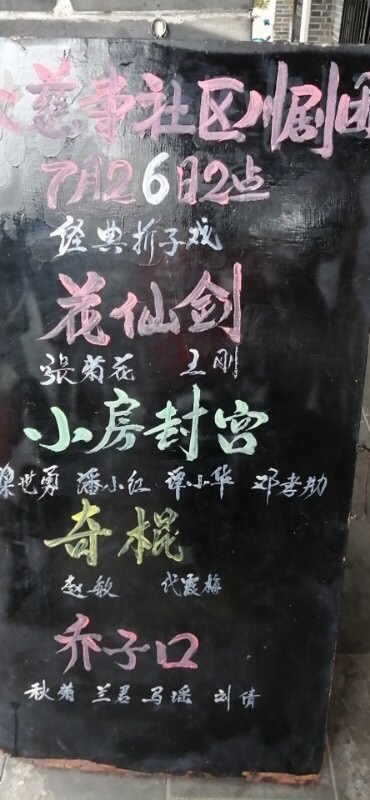 大慈寺社区川剧团
7月26日2点
经典折子戏
花仙剑
张菊花 王刚
小房封宫
梁世勇 潘小红 谭小华 邓孝勋
奇棍
赵敏 代霞梅
乔子口
秋菊 兰君 马瑶 刘倩